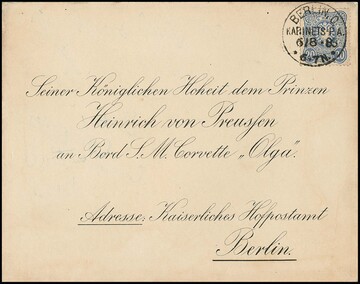 BERLIN, C.
KABINETS-P.A.
6/8 85
* 6-7N. *
20 20
Seiner Königlichen Hoheit dem Prinzen
Heinrich von Preussen
an Bord S.M. Corvette „Olga".
Adresse: Kaiserliches Hofpostamt
Berlin.